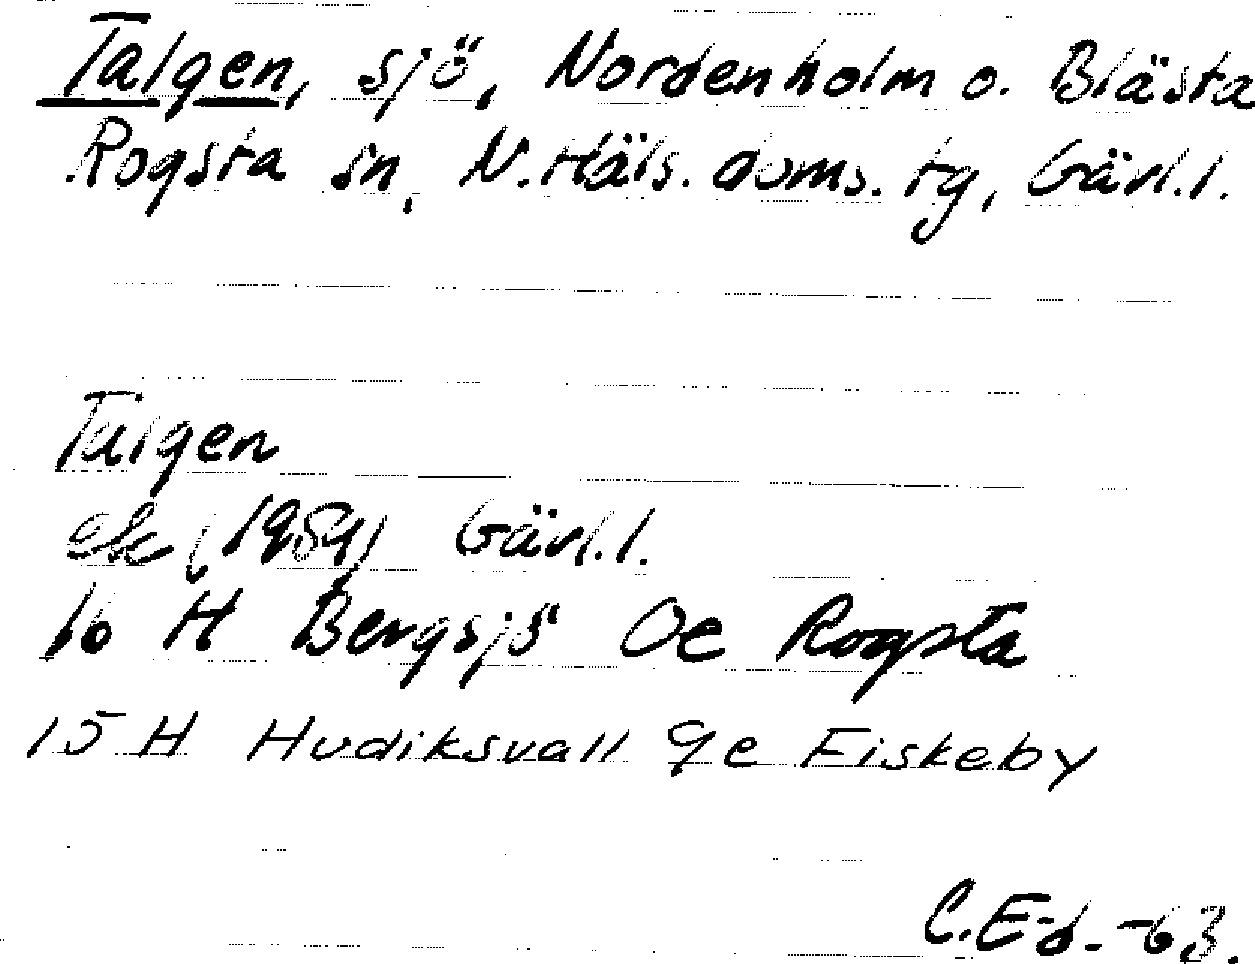 Talgen, sjö, Nordenholm o. Blästa
Rogsta sn, N. Häls. doms. tg, Gävl.l.
Talgen
ek (1959) Gävl.l.
16 H Bergsjö 0e Rogsta
15 H Hudiksvall 9e Fiskeby
C.E-d.-63.